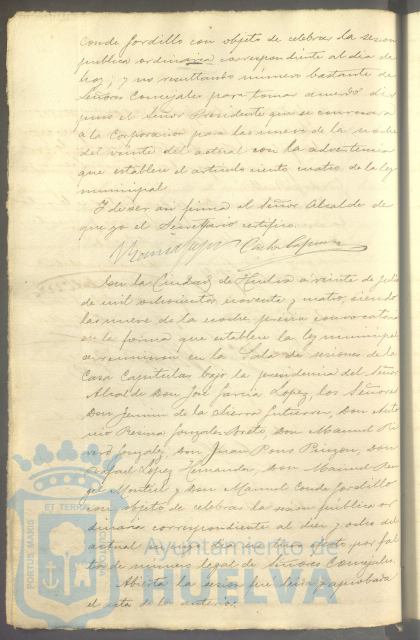 Conde Gordillo con objeto de celebrar la sesion
publica ordinaria correspondiente al dia de
hoy; y no resultando número bastante de
Señores Concejales para tomar acuerdo dis
puso el Señor Presidente que se convocara
á la Corporacion para las nueve de la noche
del veinte del actual con la advertencia
que establece el articulo ciento cuatro de la ley
municipal
Y de ser asi firma el Señor Alcalde de
que yo el Secretario certifico.
En la Ciudad de Huelva a veinte de Julio
de mil ochocientos noventa y cuatro, siendo
las nueve de la noche, previa convocatoria
en la forma que establece la ley municipal
se reunieron en la Sala de sesiones de la
Casa Capitular bajo la presidencia del Señor
Alcalde Don José Garcia Lopez, los Señores
Don Jimm de la Sierra Gutierrez, Don Anto
nio Resina Gonzalez Don Manuel Ri
vero Gonzalez, Don Juan Pons Pinzon, Don
Rafael Lopez Hernandez, Don Manuel
Montiel y Don Manuel Conde Gordillo
con objeto de celebrar la sesion pública or
dinaria correspondiente al diez y ocho del
actual que no tuvo efecto por fal
ta de número legal de Señores Concejales.
Abierta la sesion fue leida y aprobada
el acta de la anterior.
PORTUS MARIS
ET TERRÆ
CUSTODIA
Ayuntamiento de
HUELVA